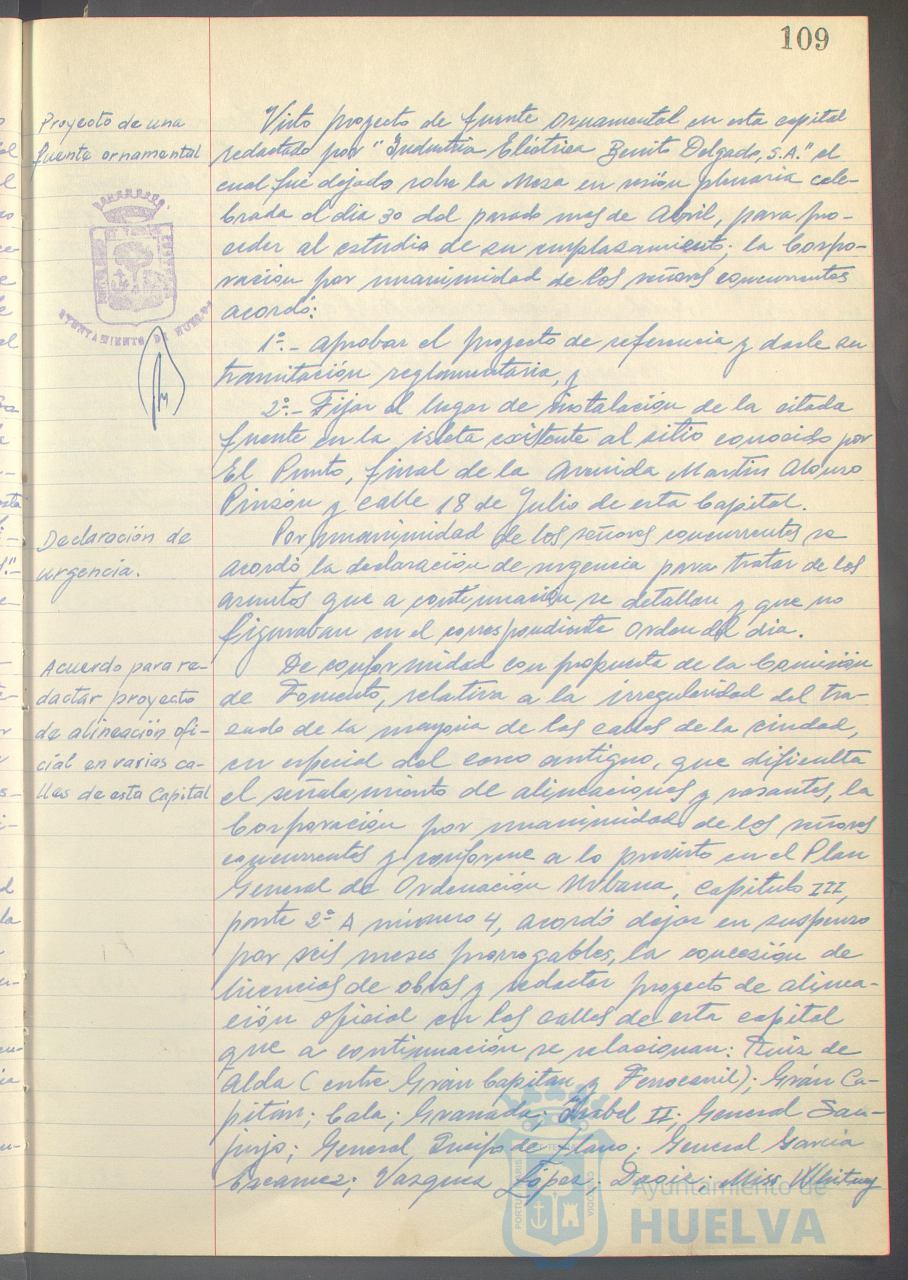 109
Proyecto de una
fuente ornamental
Visto proyecto de fuente ornamental en esta capital
redactado por "Industria Eléctrica Benito Delgado, S.A." el
cual fue dejado sobre la Mesa en sesión plenaria cele-
brada el día 30 del pasado mes de Abril, para pro-
ceder al estudio de su emplazamiento; la Corpo-
ración por unanimidad de los señores concurrentes
acordó:
1º.- Aprobar el proyecto de referencia y darle su
tramitación reglamentaria, y
2º.- Fijar el lugar de instalación de la citada
fuente en la isleta existente al sitio conocido por
El Punto, final de la Avenida Martín Alonso
Pinzón y calle 18 de Julio de esta Capital.
AYUNTAMIENTO DE HUELVA
Declaración de
urgencia.
Por unanimidad de los señores concurrentes se
acordó la declaración de urgencia para tratar de los
asuntos que a continuación se detallan y que no
figuraban en el correspondiente Orden del día.
Acuerdo para re-
dactar proyecto
de alineación ofi-
cial en varias ca-
lles de esta Capital
De conformidad con propuesta de la Comisión
de Fomento, relativa a la irregularidad del tra-
zado de la mayoría de las calles de la ciudad,
en especial del casco antiguo, que dificulta
el señalamiento de alineaciones y rasantes, la
Corporación por unanimidad de los señores
concurrentes y conforme a lo previsto en el Plan
General de Ordenación Urbana, capítulo III,
parte 2ª A número 4, acordó dejar en suspenso
por seis meses prorrogables, la concesión de
licencias de obras y redactar proyecto de alinea-
ción oficial en las calles de esta capital
que a continuación se relacionan: Ruiz de
Alda (entre Gran Capitán y Ferrocarril); Gran Ca-
pitán; Cala; Granada; Isabel II; General San-
jurjo; General Queipo de Llano; General García
Escamez; Vazquez López; Daoiz; Miss Whitney
Ayuntamiento de
HUELVA